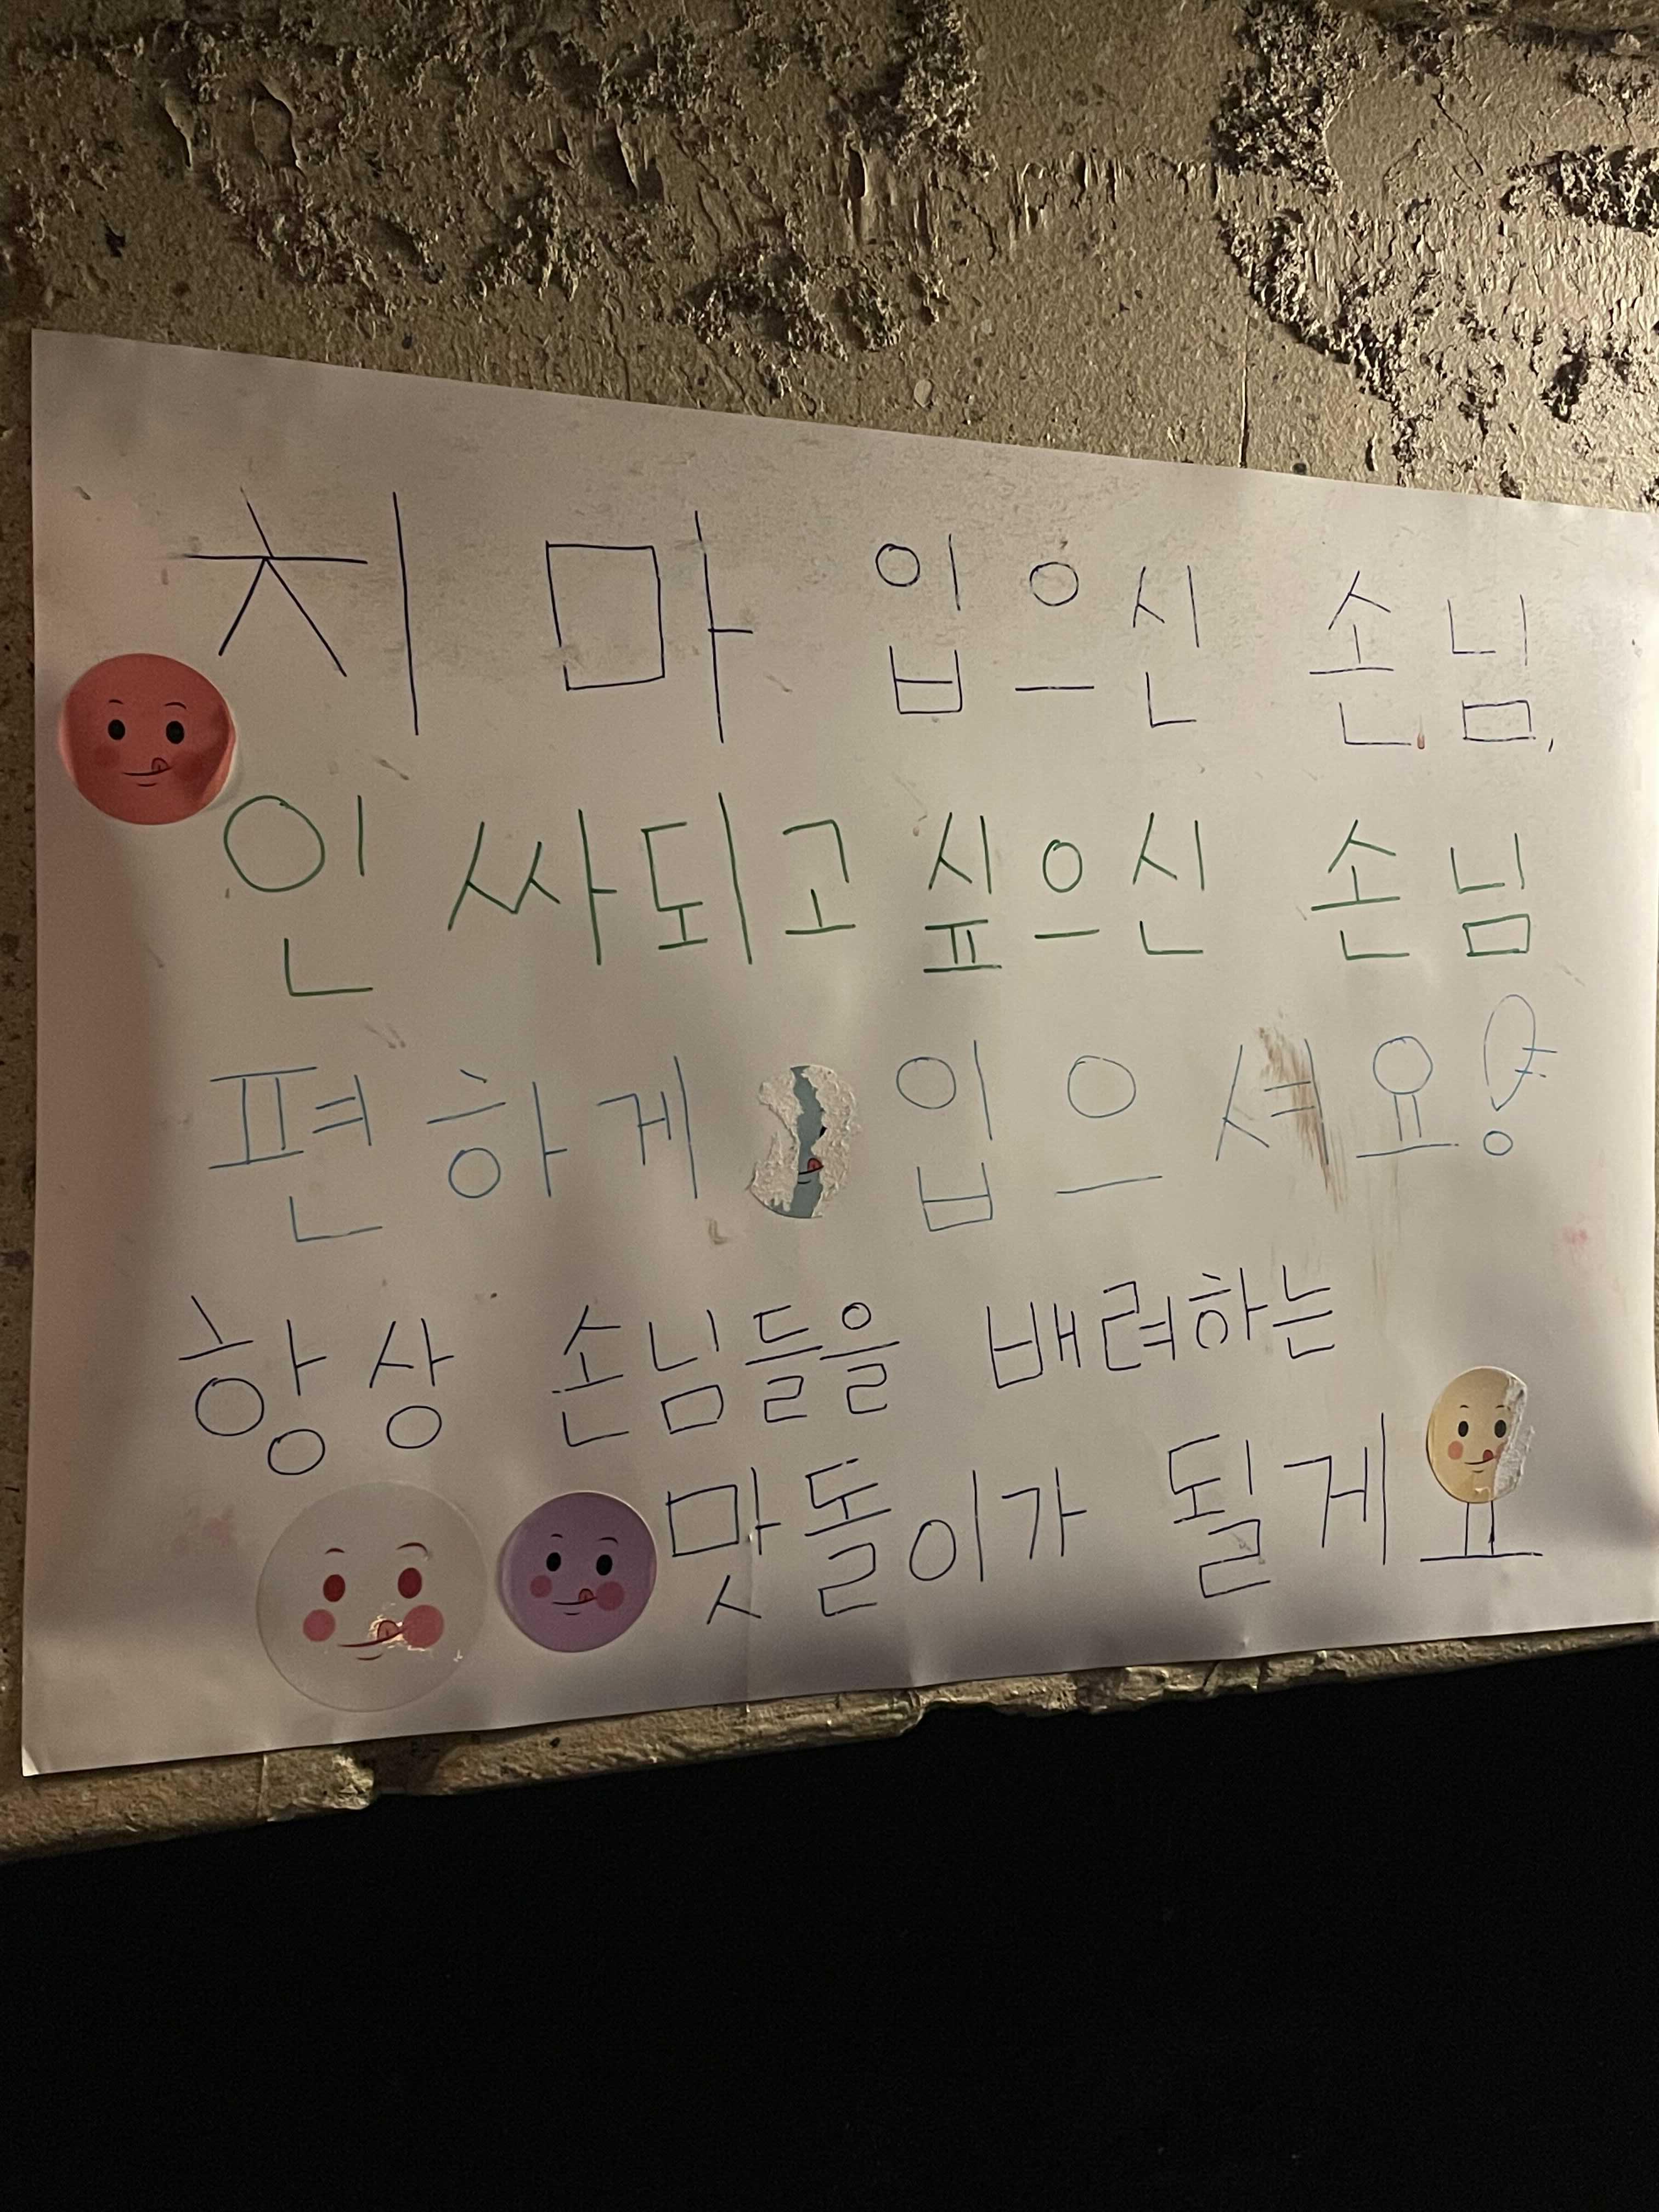 치마 입으신 손님,
인싸되고 싶으신 손님
편하게 입으셔요!
항상 손님들을 배려하는
맛돌이가 될게요